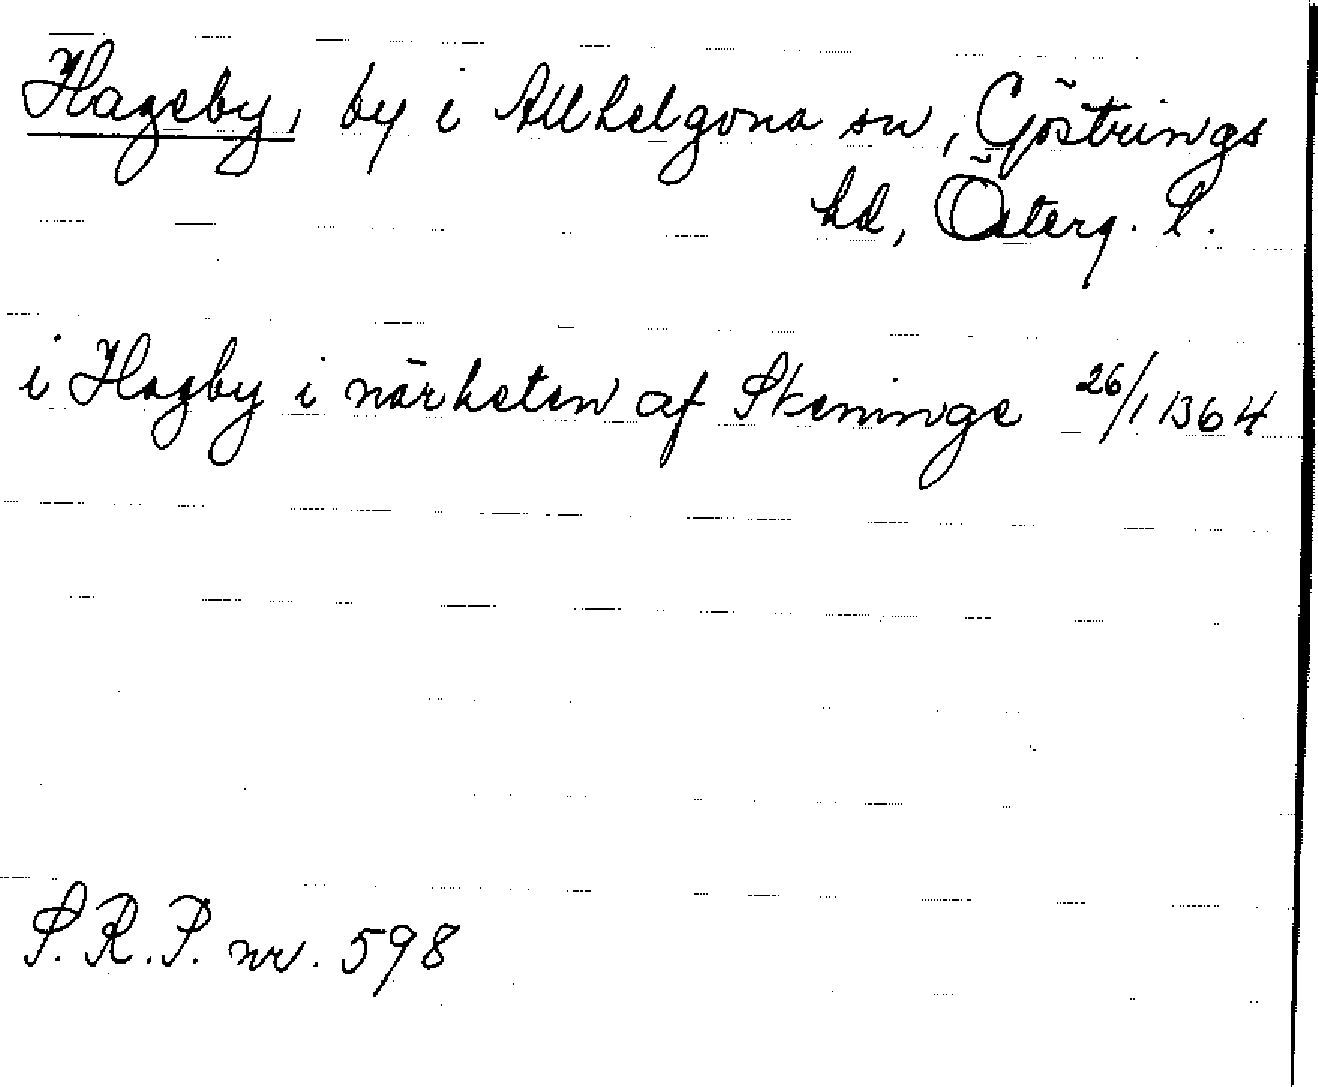 Hageby, by i Allhelgona sn, Göstrings
hd, Österg. l.
i Hagby i närheten af Skeninge 26/1 1364
S.R.P. nr. 598